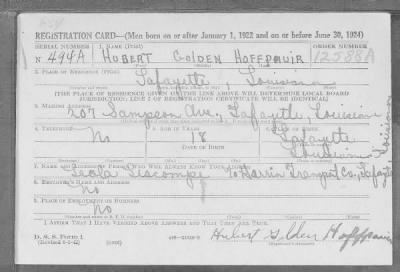 REGISTRATION CARD—(Men born on or after January 1, 1922 and on or before June 30, 1924)
SERIAL NUMBER 1. NAME (Print) ORDER NUMBER
N 494A Hubert Golden Hoffpauir 12588A
2. PLACE OF RESIDENCE (Print)
Lafayette, Louisiana
(THE PLACE OF RESIDENCE GIVEN ON THE LINE ABOVE WILL DETERMINE LOCAL BOARD
JURISDICTION; LINE 2 OF REGISTRATION CERTIFICATE WILL BE IDENTICAL)
3. MAILING ADDRESS
207 Sampson Ave., Lafayette, Louisiana
4. TELEPHONE 5. AGE IN YEARS 6. PLACE OF BIRTH
No 18 Lafayette
DATE OF BIRTH
Louisiana
7. NAME AND ADDRESS OF PERSON WHO WILL ALWAYS KNOW YOUR ADDRESS
Transport Co., Lafayette, Louisiana
8. EMPLOYER'S NAME AND ADDRESS
No
9. PLACE OF EMPLOYMENT OR BUSINESS
No
I AFFIRM THAT I HAVE VERIFIED ABOVE ANSWERS AND THAT THEY ARE TRUE.
D. S. S. Form 1
Hubert Golden Hoffpauir